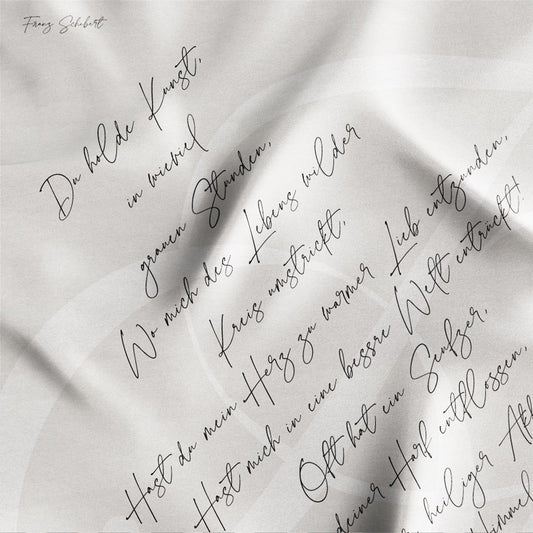 Franz Schubert
Du holde Kunst,
in wieviel
grauen Stunden,
Wo mich des Lebens wilder
Kreis umstrickt,
Hast du mein Herz zu warmer Lieb entzunden,
Hast mich in eine bessre Welt entrückt!
Oft hat ein Seufzer,
deiner Harf entflossen,
heiliger
Himmel